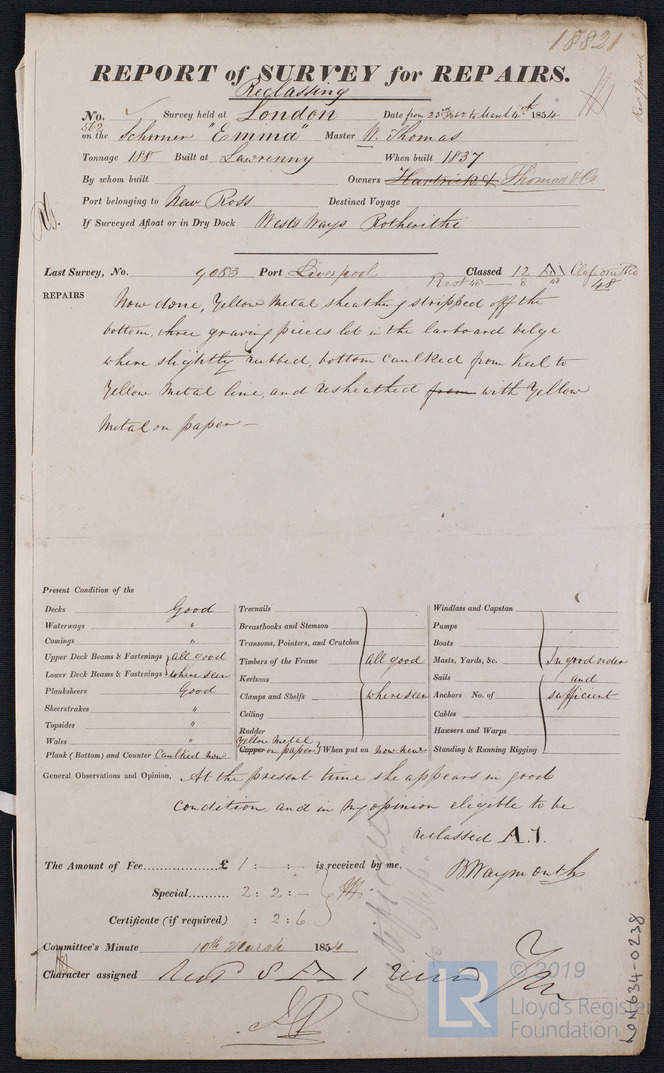 18821
REPORT of SURVEY for REPAIRS.
Reclassing
No. 562 Survey held at London Date from 23rd Feb to March 4th 1854
on the Schooner "Emma" Master W. Thomas
Tonnage 188 Built at Lawrenny When built 1837
By whom built Owners Hartrick & Thomas & Co
Port belonging to New Ross Destined Voyage
If Surveyed Afloat or in Dry Dock Wests Ways Rotherithe
Last Survey, No. 9083 Port Liverpool Classed 12 A1 Class omitted 48
Rest 48 8 48
REPAIRS Now done, Yellow Metal sheathing stripped off the
bottom, three graving pieces let in the larboard belge
where slightly rubbed, bottom caulked from Keel to
Yellow Metal line, and resheathed from with Yellow
Metal on paper —
Present Condition of the
Decks Good
Waterways "
Comings "
Upper Deck Beams & Fastenings all good
Lower Deck Beams & Fastenings where seen
Planksheers Good
Sheerstrakes "
Topsides "
Wales "
Plank (Bottom) and Counter Caulked now
Treenails
Breasthooks and Stemson
Transoms, Pointers, and Crutches
Timbers of the Frame all good
Keelsons
Clamps and Shelfs where seen
Ceiling
Rudder
Yellow Metal
Copper on paper When put on now new
Windlass and Capstan
Pumps
Boats
Masts, Yards, &c. In good order
Sails and
Anchors No. of sufficient
Cables
Hawsers and Warps
Standing & Running Rigging
General Observations and Opinion, At the present time she appears in good
condition, and in my opinion eligible to be
reclassed A.1.
The Amount of Fee £ 1 : - : - is received by me,
B Waymouth
Special 2 : 2 : -
Certificate (if required) : 2 : 6
Committee's Minute 10th March 1854
Character assigned Rest 8 A 1
© 2019
LR
Lloyd's Register
Foundation
LON634-0238